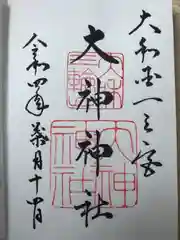 大和国一之宮
大神神社
令和四年葉月十四日